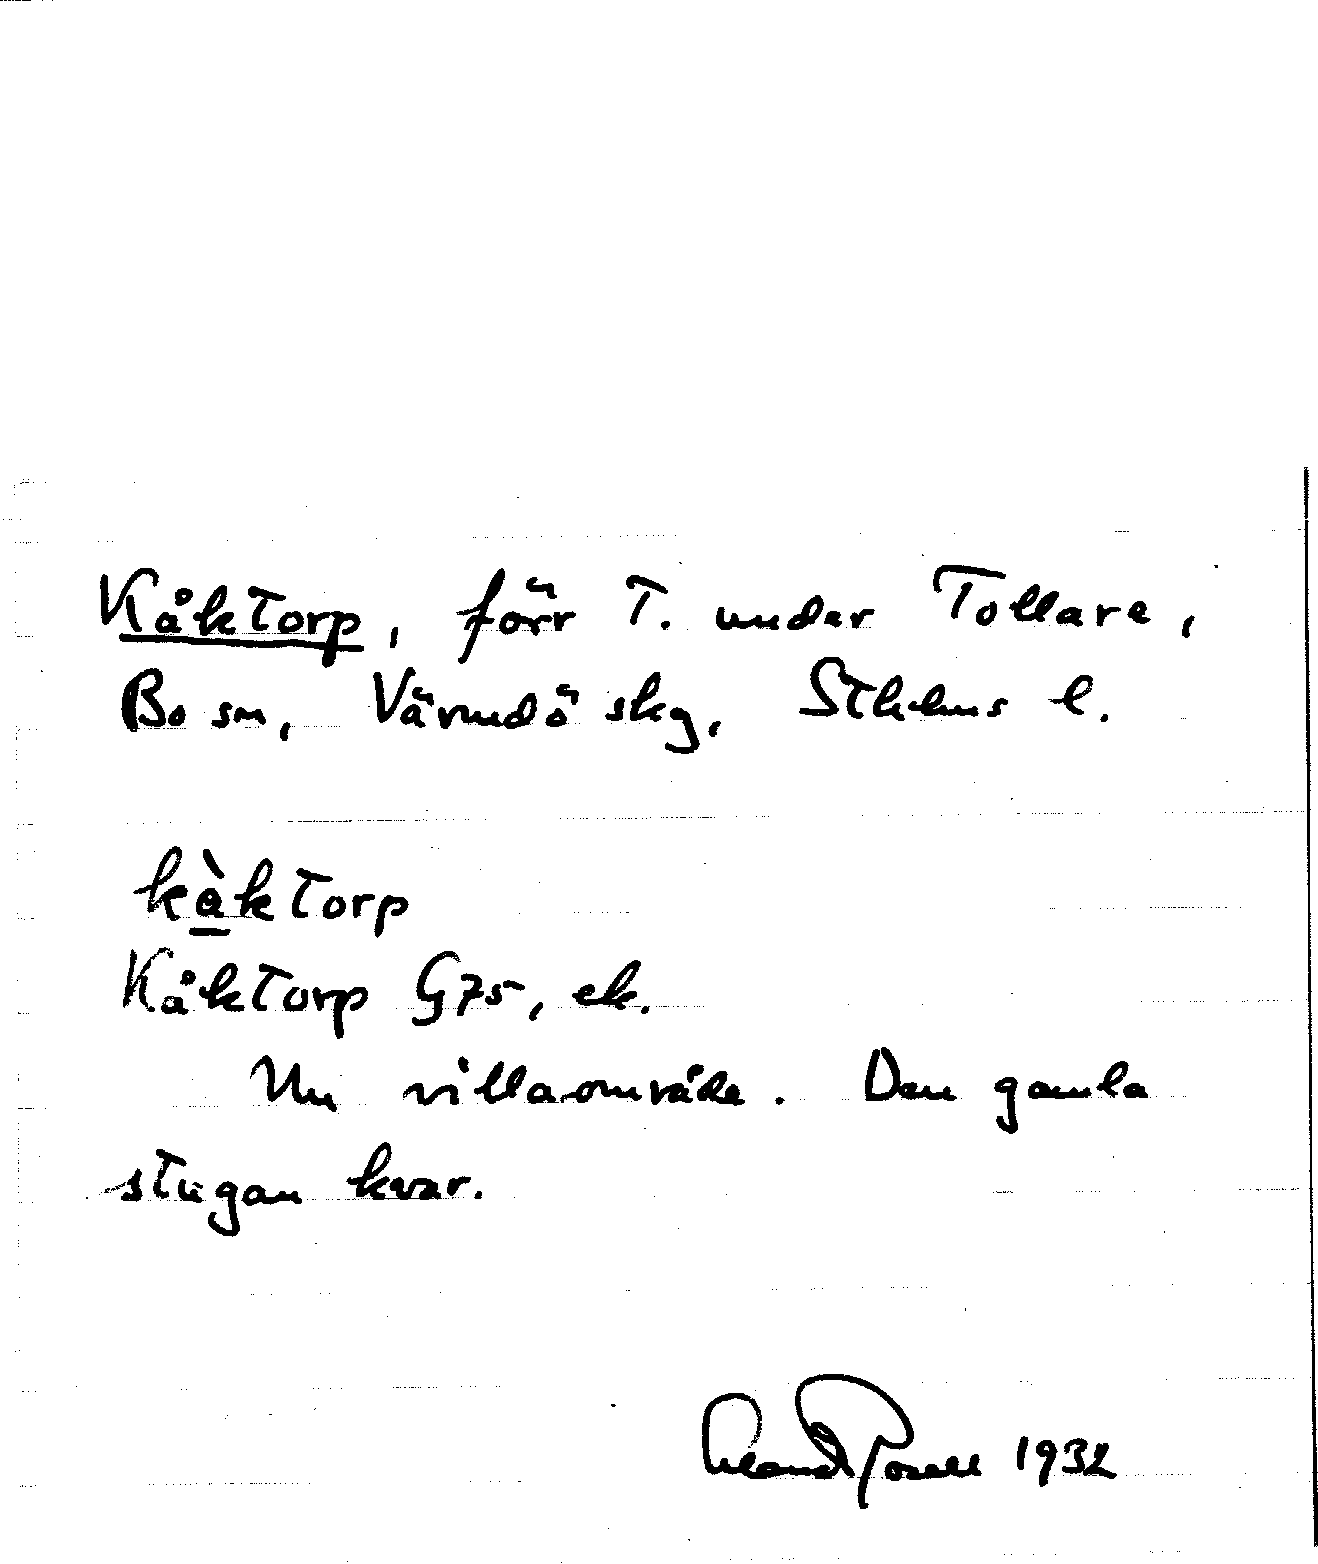 Kåktorp, förr T. under Tollare,
Bo sn, Värmdö skg, Sthlms l.
kàktorp
Kåktorp G75, ek.
Nu villaområde. Den gamla
stugan kvar.
1932